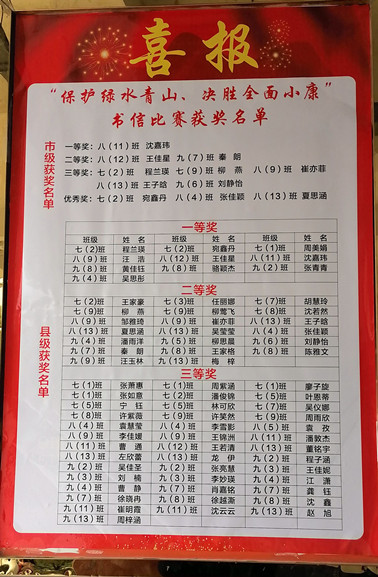 喜报
“保护绿水青山、决胜全面小康”
书信比赛获奖名单
市级获奖名单
一等奖：八（11）班 沈嘉玮
二等奖：八（12）班 王佳星 九（7）班 秦 朗
三等奖：七（2）班 程兰瑛 七（9）班 柳 燕 八（9）班 崔亦菲
八（13）班 王子晗 九（6）班 刘静怡
优秀奖：七（2）班 宛鑫丹 八（4）班 张佳颖 八（13）班 夏思涵
县级获奖名单
一等奖
班级 姓 名 班级 姓 名 班级 姓 名
七（2）班 程兰瑛 七（2）班 宛鑫丹 七（11）班 周美娟
八（9）班 汪 浩 八（12）班 王佳星 八（11）班 沈嘉玮
九（8）班 黄佳钰 九（8）班 骆颖杰 九（2）班 张青青
九（4）班 吴思彤
二等奖
七（2）班 王家豪 七（3）班 任丽娜 七（7）班 胡慧玲
七（9）班 柳 燕 七（9）班 柳莺飞 七（8）班 沈若然
八（9）班 邹雅琦 八（9）班 崔亦菲 八（13）班 王子晗
八（13）班 夏思涵 八（13）班 吴莹莹 八（4）班 张佳颖
九（4）班 潘雨洋 九（5）班 柳思晨 九（6）班 刘静怡
九（7）班 秦 朗 九（8）班 王家格 九（8）班 陈雅文
九（12）班 汪玉林 九（13）班 梅 梓
三等奖
七（1）班 张萧惠 七（1）班 周紫涵 七（1）班 廖子旋
七（1）班 张如意 七（2）班 潘俊锦 七（5）班 叶恩蒂
七（5）班 宁 钰 七（5）班 林可欣 七（7）班 吴仪娜
七（8）班 许紫薇 七（9）班 许昊然 七（9）班 周雨欣
八（4）班 袁慧莹 八（4）班 李雪影 八（5）班 袁 孜
八（9）班 李佳媛 八（9）班 王锦洲 八（11）班 潘敦杰
八（11）班 曹 通 八（12）班 王若清 八（13）班 董铭宇
八（13）班 左欣蕾 八（13）班 龙 伊 九（2）班 程子涵
九（2）班 吴佳圣 九（2）班 张亮慧 九（3）班 王佳妮
九（3）班 刘 楠 九（3）班 李妙瑛 九（4）班 江 潇
九（4）班 曹 静 九（7）班 肖嘉铭 九（7）班 龚 钰
九（7）班 徐晓冉 九（8）班 徐越渐 九（8）班 沈 鑫
九（11）班 崔明霞 九（11）班 沈云云 九（13）班 赵 旭
九（13）班 周梓涵